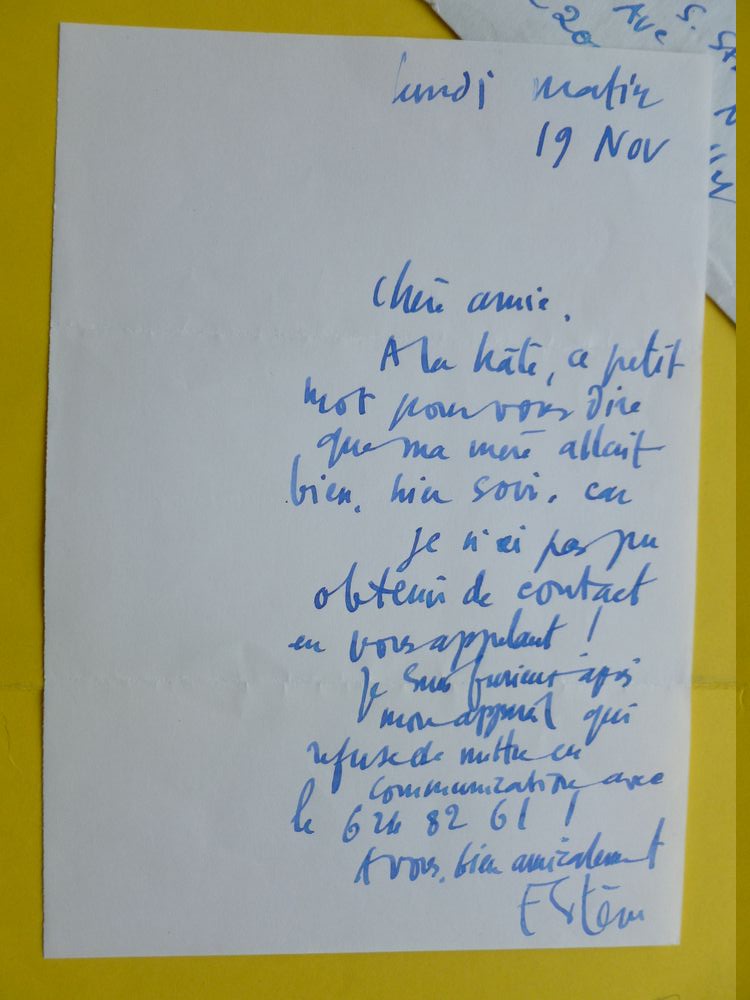 lundi matin
19 Nov
Chère amie.
A la hâte, ce petit
mot pour vous dire
que ma mère allait
bien, hier soir. car
je n'ai pas pu
obtenir de contact
en vous appelant !
Je suis furieux après
mon appareil qui
refuse de mettre en
communication avec
le 624 82 61 !
A vous, bien amicalement
Estève
Ave S.
20